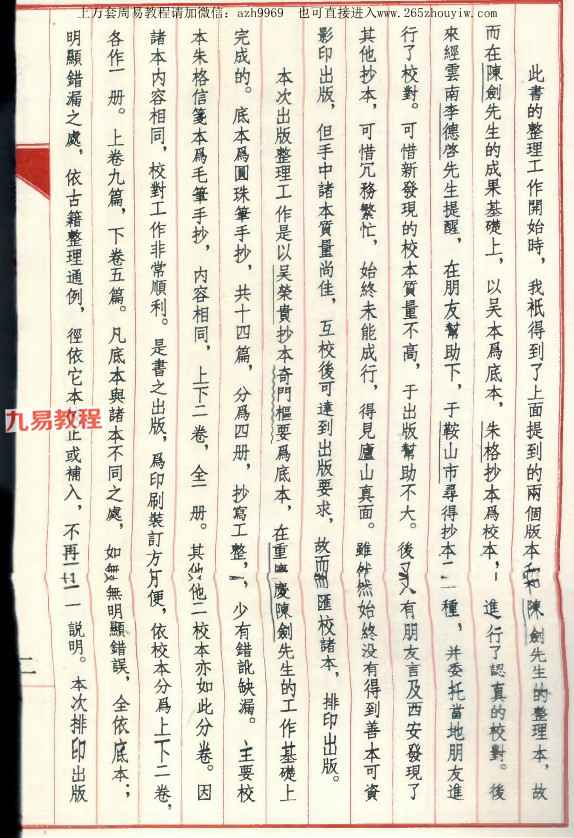 上万套周易教程请加微信：azh9969 也可直接进入www.265zhouyiw.com
此書的整理工作開始時，我祇得到了上面提到的兩個版本和陳劍先生的整理本，故
而在陳劍先生的成果基礎上，以吴本爲底本，朱格抄本爲校本，進行了認真的校對。後
來經雲南李德啓先生提醒，在朋友幫助下，于鞍山市尋得抄本二種，并委托當地朋友進
行了校對。可惜新發現的校本質量不高，于出版幫助不大。後又有朋友言及西安發現了
其他抄本，可惜冗務繁忙，始終未能成行，得見廬山真面。雖然始終没有得到善本可資
影印出版，但手中諸本質量尚佳，互校後可達到出版要求，故而匯校諸本，排印出版。
本次出版整理工作是以吴榮貴抄本奇門樞要爲底本，在重慶陳劍先生的工作基礎上
完成的。底本爲圓珠筆手抄，共十四篇，分爲四册，抄寫工整，少有錯訛缺漏。主要校
本朱格信箋本爲毛筆手抄，内容相同，上下二卷，全一册。其他二校本亦如此分卷。因
諸本内容相同，校對工作非常順利。是書之出版，爲印刷裝訂方便，依校本分爲上下二卷，
各作一册。上卷九篇，下卷五篇。凡底本與諸本不同之處，如無明顯錯誤，全依底本；
明顯錯漏之處，依古籍整理通例，徑依它本改正或補入，不再一一説明。本次排印出版
九易教程
二